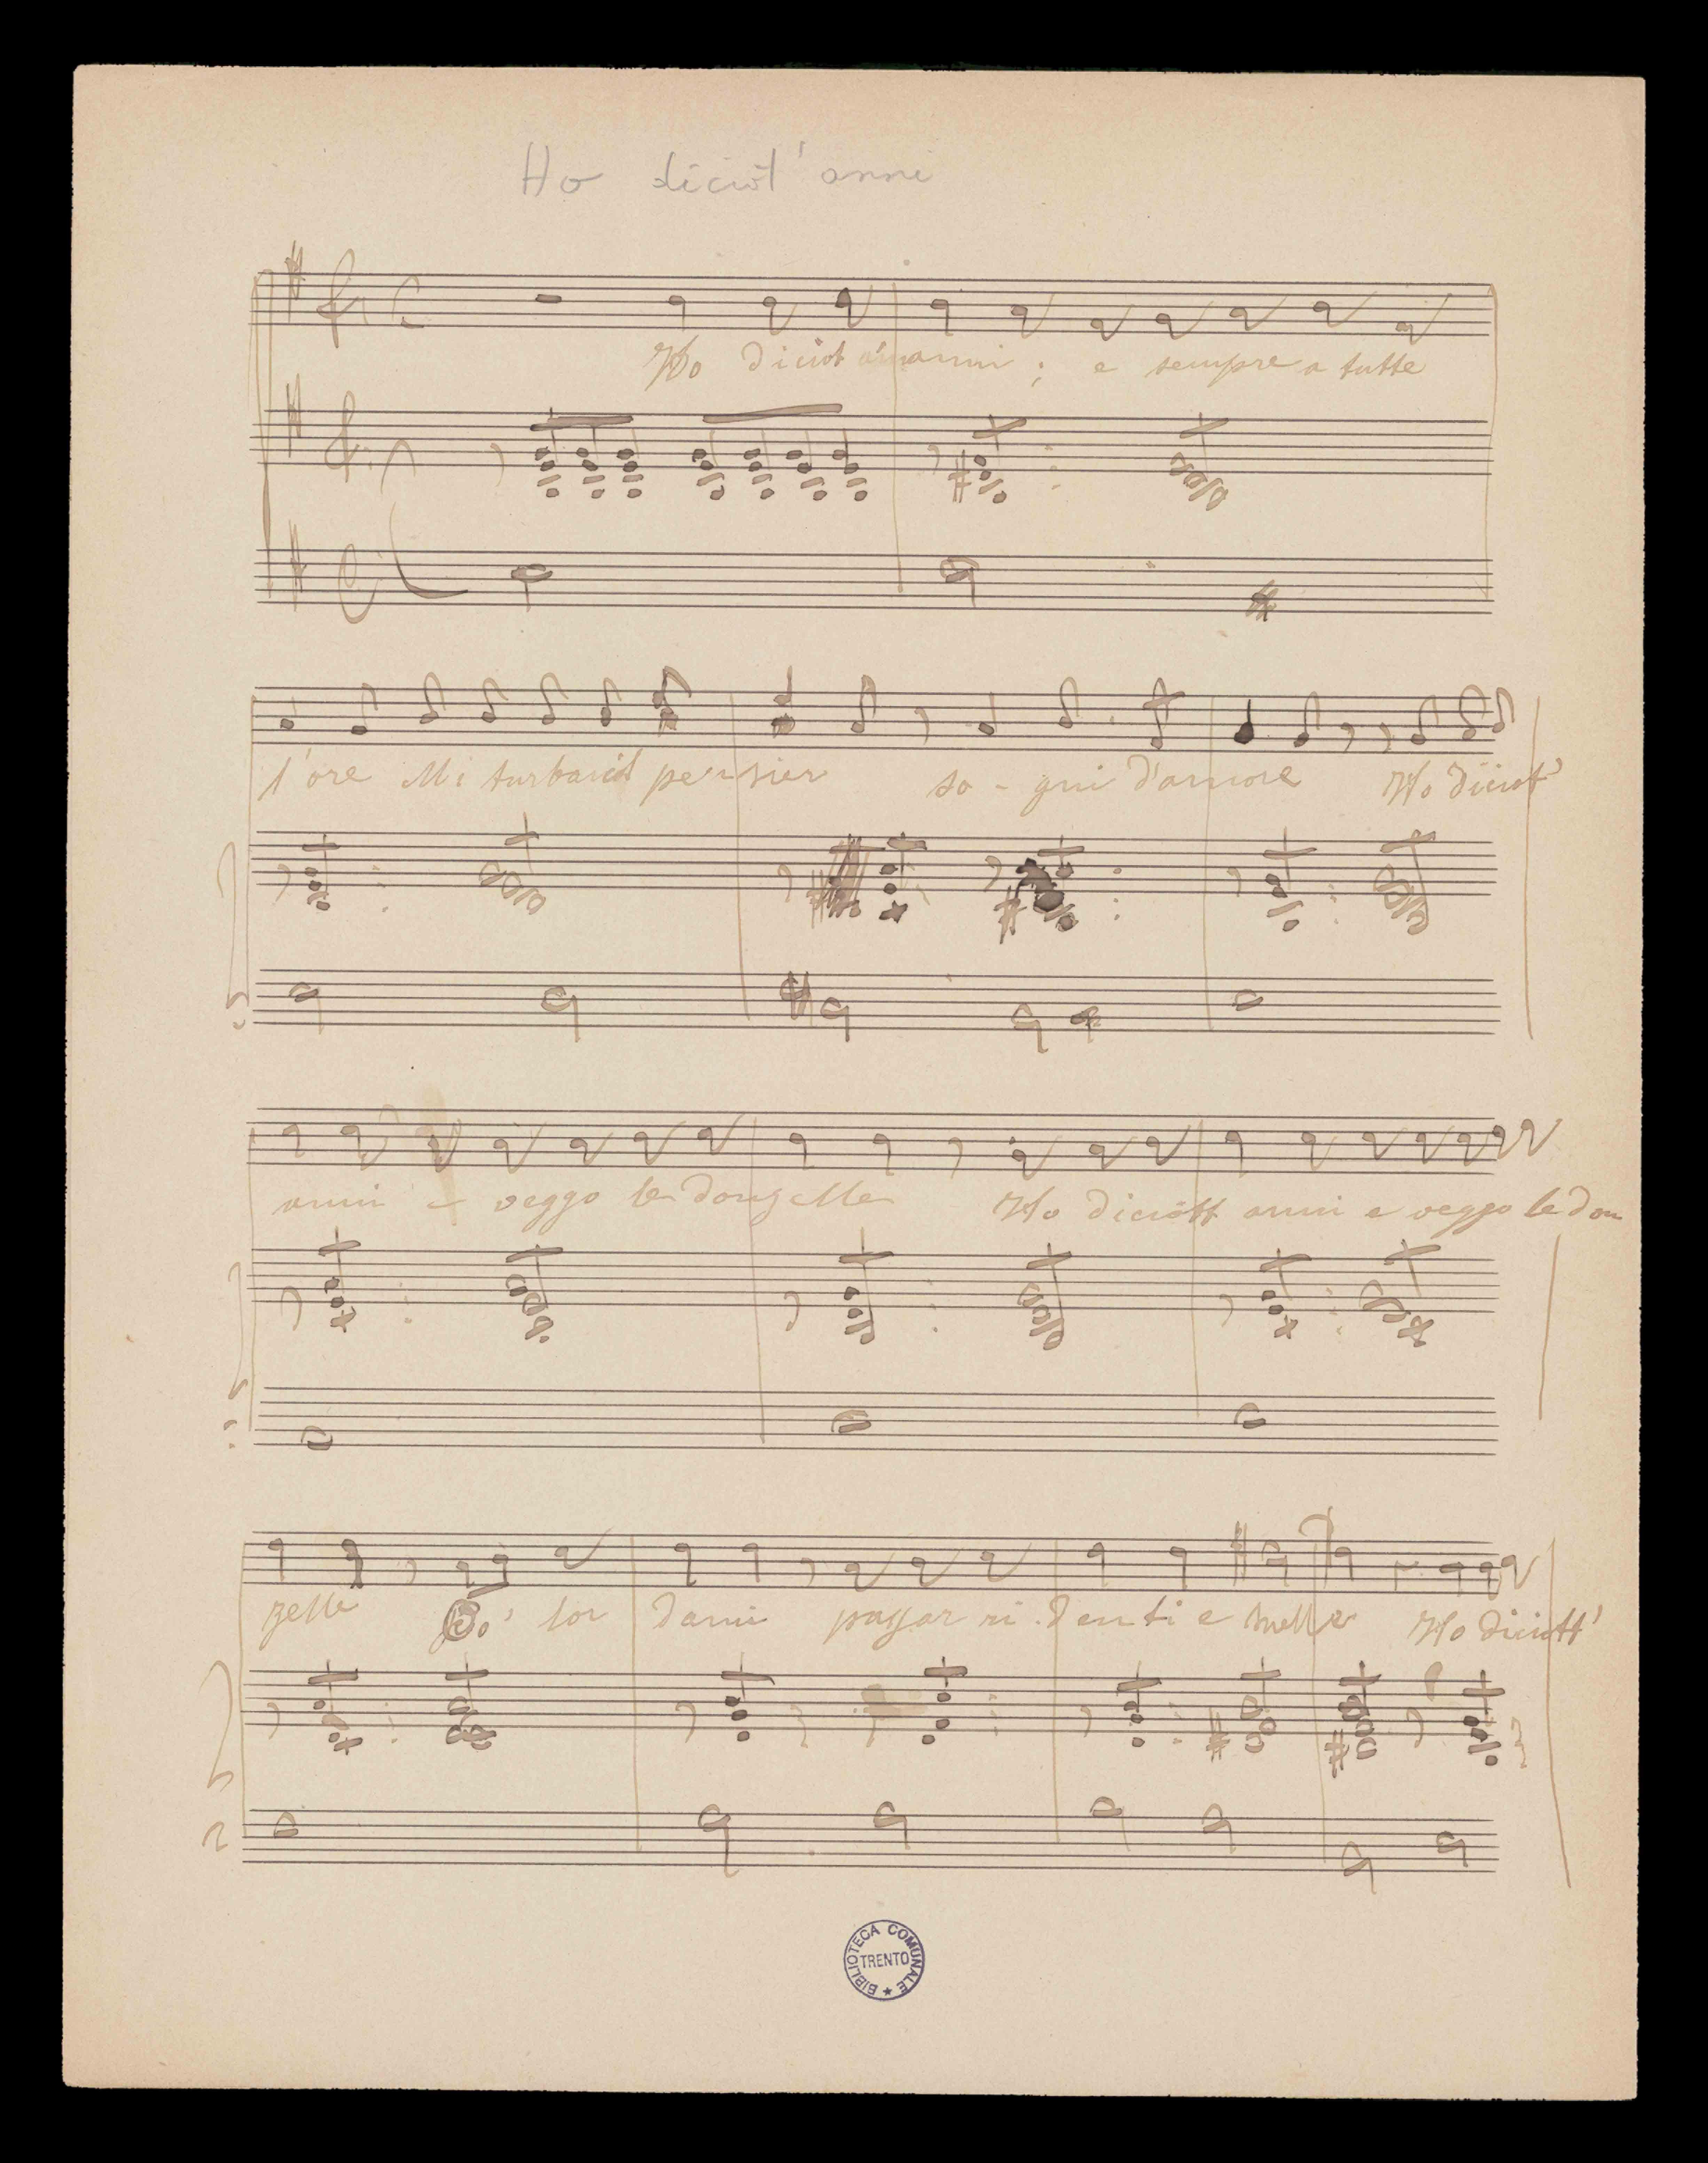 Ho diciot' anni
Ho diciot anni ; e sempre a tutte
l'ore Mi turbano pensier so - gni d'amore Ho diciot'
anni e veggo le donzelle Ho diciott anni e veggo le don
zelle lor danni passar ri.denti e belle Ho diciott'
BIBLIOTECA COMUNALE
TRENTO